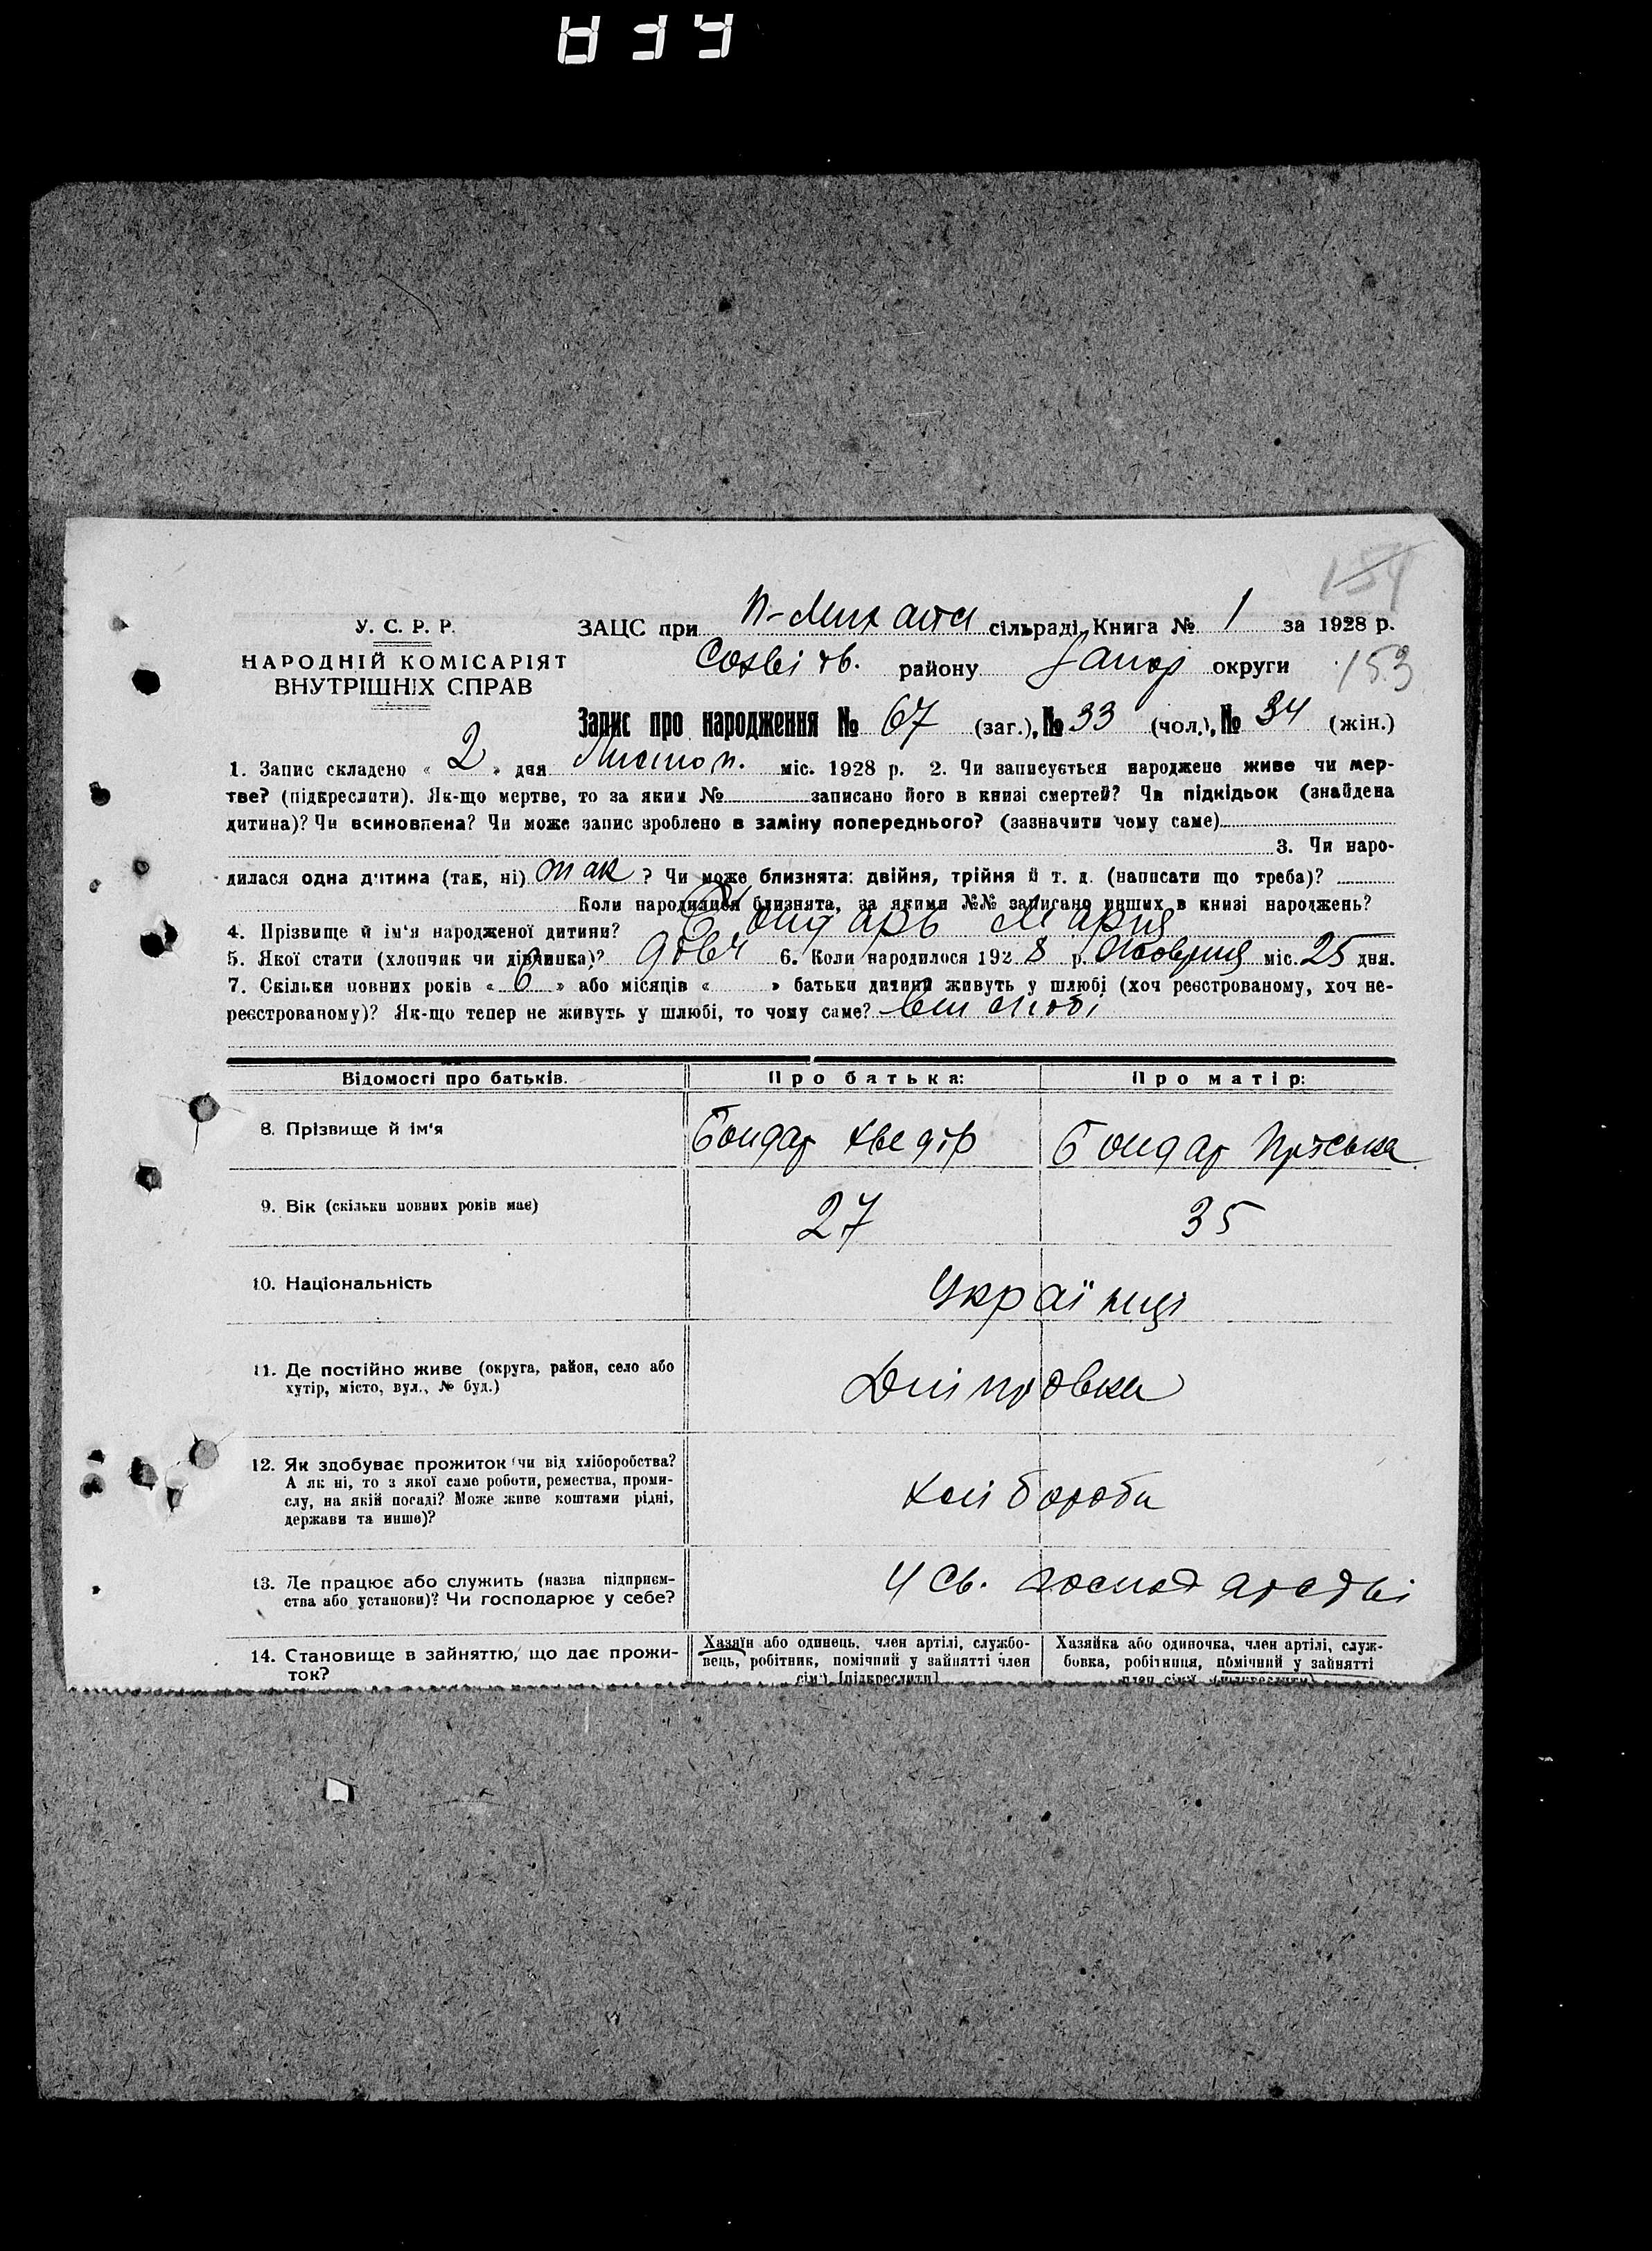 154
У. С. Р. Р.
НАРОДНІЙ КОМІСАРІЯТ
ВНУТРІШНІХ СПРАВ
ЗАЦС при сільраді, Книга № 1 за 1928 р.
району Запор округи 153
Запис про народження № 67 (заг.), № 33 (чол.), № 34 (жін.)
1. Запис складено « 2 » дня Листоп. міс. 1928 р. 2. Чи записується народжене живе чи мер-
тве? (підкреслити). Як-що мертве, то за яким № записано його в книзі смертей? Чи підкідьок (знайдена
дитина)? Чи всиновлена? Чи може запис зроблено в заміну попереднього? (зазначити чому саме)
3. Чи наро-
дилася одна дитина (так, ні) так ? Чи може близнята: двійня, трійня й т. д. (написати що треба)?
Коли народилися близнята, за якими №№ записано инших в книзі народжень?
4. Прізвище й ім'я народженої дитини? Бондарь Мария
5. Якої стати (хлопчик чи дівчинка)? дівч 6. Коли народилося 192 8 р. Жовтня міс. 25 дня.
7. Скільки повних років « 6 » або місяців « » батьки дитини живуть у шлюбі (хоч реєстрованому, хоч не-
реєстрованому)? Як-що тепер не живуть у шлюбі, то чому саме?
Відомості про батьків.
Про батька:
Про матір:
8. Прізвище й ім'я
Бондар Хведір
Бондар Пріська
9. Вік (скільки повних років має)
27
35
10. Національність
Українці
11. Де постійно живе (округа, район, село або
хутір, місто, вул., № буд.)
Дніпровка
12. Як здобуває прожиток (чи від хліборобства?
А як ні, то з якої саме роботи, ремества, проми-
слу, на якій посаді? Може живе коштами рідні,
держави та инше)?
Хлібороби
13. Де працює або служить (назва підприєм-
ства або установи)? Чи господарює у себе?
У св. господарстві
14. Становище в зайняттю, що дає прожи-
ток?
Хазяїн або одинець, член артілі, службо-
вець, робітник, помічний у зайнятті член
сім'ї [підкреслити]
Хазяйка або одиночка, член артілі, служ-
бовка, робітниця, помічний у зайнятті
член сім'ї (підкреслити)